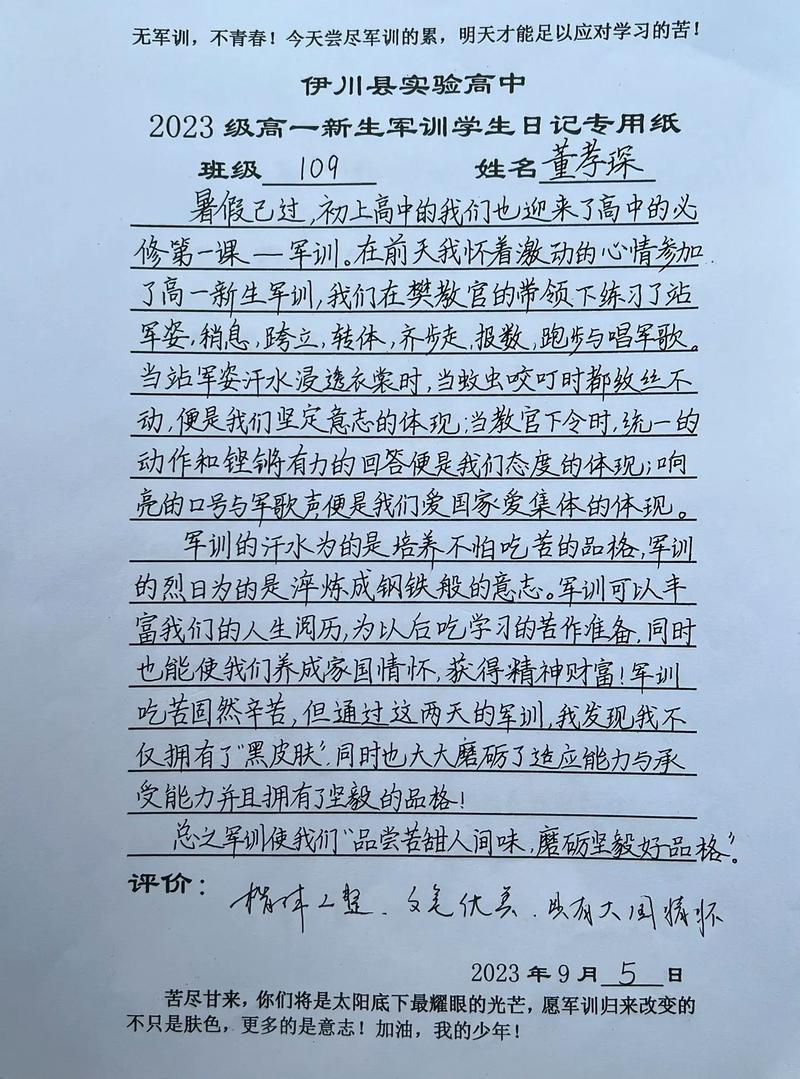 无军训，不青春！今天尝尽军训的累，明天才能足以应对学习的苦！
伊川县实验高中
2023 级高一新生军训学生日记专用纸
班级 109 姓名 董孝琛
暑假已过，初上高中的我们也迎来了高中的必
修第一课 — 军训。在前天我怀着激动的心情参加
了高一新生军训，我们在樊教官的带领下练习了站
军姿，稍息，跨立，转体，齐步走，报数，跑步与唱军歌。
当站军姿汗水浸透衣裳时，当蚊虫咬叮时都纹丝不
动，便是我们坚定意志的体现；当教官下令时，统一的
动作和铿锵有力的回答便是我们态度的体现；响
亮的口号与军歌声便是我们爱国家爱集体的体现。
军训的汗水为的是培养不怕吃苦的品格，军训
的烈日为的是淬炼成钢铁般的意志。军训可以丰
富我们的人生阅历，为以后吃学习的苦作准备，同时
也能使我们养成家国情怀，获得精神财富！军训
吃苦固然辛苦，但通过这两天的军训，我发现我不
仅拥有了“黑皮肤”，同时也大大磨砺了适应能力与承
受能力并且拥有了坚毅的品格！
总之军训使我们“品尝苦甜人间味，磨砺坚毅好品格”。
评价： 楷体工整、文笔优美、具有大国情怀
2023 年 9 月 5 日
苦尽甘来，你们将是太阳底下最耀眼的光芒，愿军训归来改变的
不只是肤色，更多的是意志！加油，我的少年！